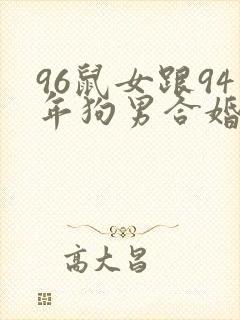 96鼠女跟94
年狗男合婚
高大昌